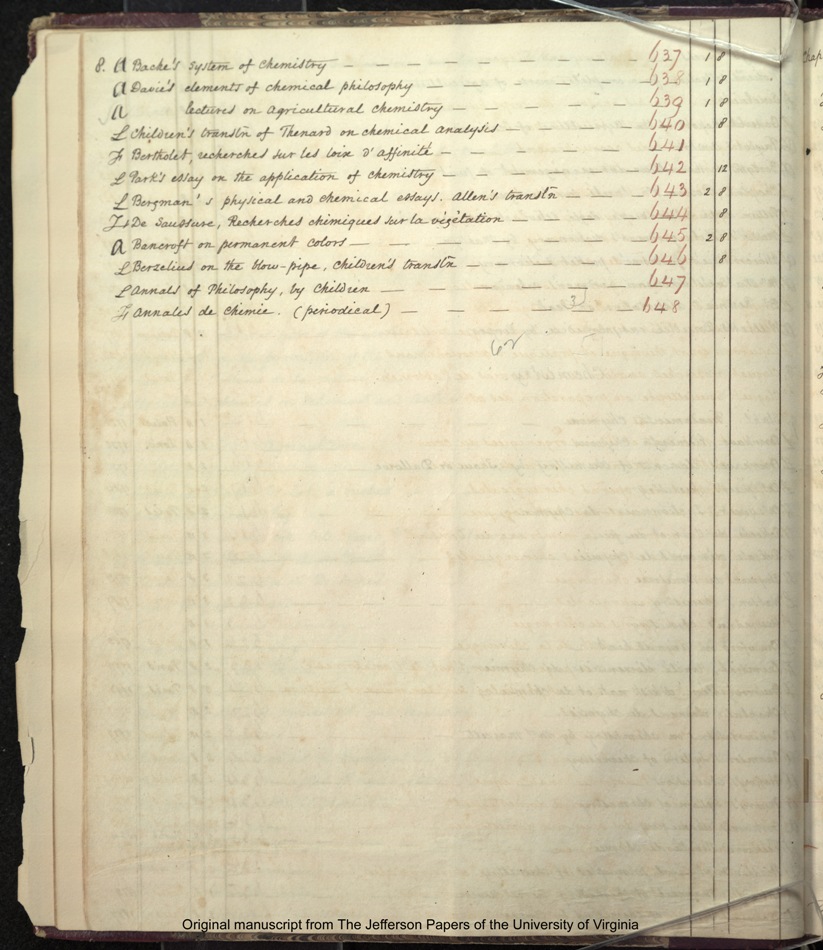 8. A Bache's system of chemistry — — — — — — — — 637 1 8
A Davie's elements of chemical philosophy — — — — — — 638 1 8
A lectures on Agricultural chemistry — — — — — — 639 1 8
L Children's translñ of Thenard on chemical analysis — — — — 640 8
F Bertholet, recherches sur les loix d'affinité — — — — — — 641
L Park's essay on the application of chemistry — — — — — — 642 12
L Bergman's physical and chemical essays. Allen's translñ — — — 643 2 8
F De Saussure, Recherches chimiques sur la végétation — — — — 644 8
A Bancroft on permanent colors — — — — — — — — 645 2 8
L Berzelius on the blow-pipe, Children's translñ — — — — — 646 8
L Annals of Philosophy, by Children — — — — — — — 647
F Annales de chimie. (periodical) — — — — — — 648
3
62
Chap
Original manuscript from The Jefferson Papers of the University of Virginia